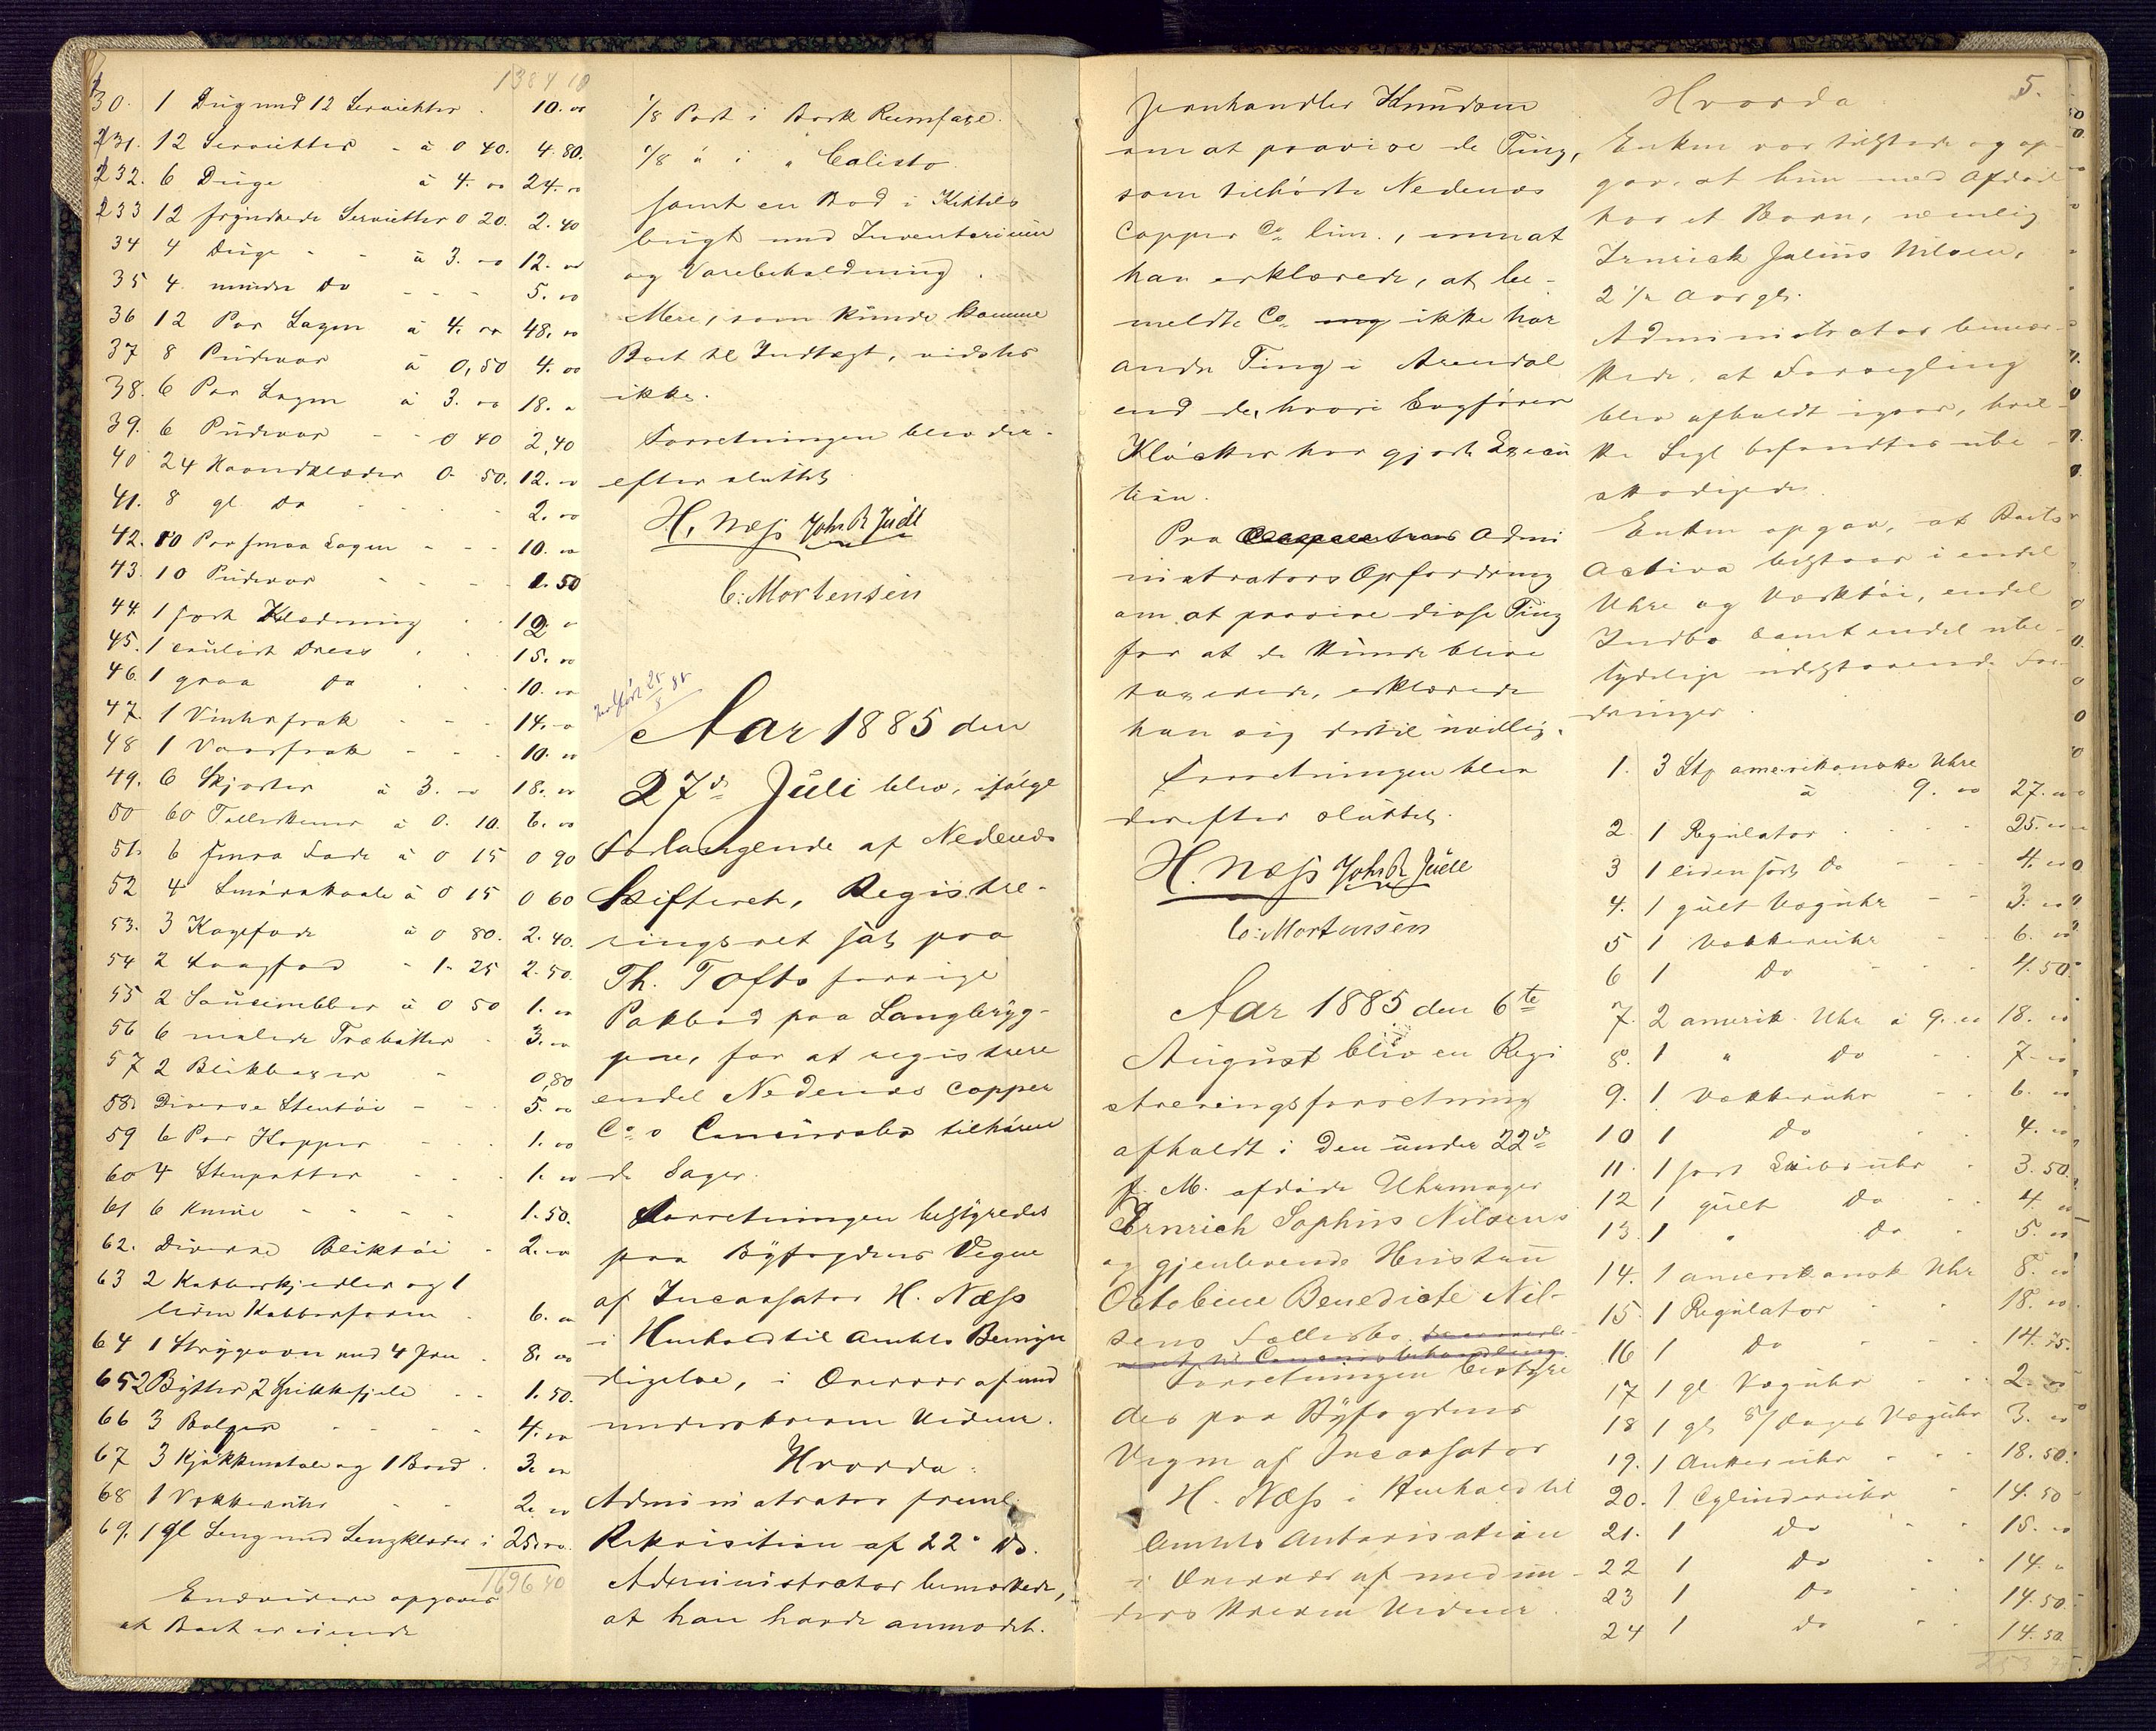 1384 10
30. 1 Dug med 12 Servietter . 10. 00
231. 12 Servietter - à 0 40. 4. 80.
232. 6 Duge à 4. 00 24. 00
233 12 frynsede Servietter 0 20. 2. 40
34 4 Duge - - à 3. 00 12. 00
35 4 mindre Do - - - 5. 00
36 12 Par Lagen à 4. 00 48. 00
37 8 Pudevar à 0,50 4. 00
38. 6 Par Lagen à 3. 00 18. 00
39. 6 Pudevar - - 0 40 2,40
40 24 Haandklæder 0. 50. 12. 00
41. 8 gl. Do - - - - 2. 00
42. 10 Par smaa Lagen - - - 10. 00
43. 10 Pudevar - - - - 1. 50
44. 1 sort Klædning - - 12. 00
45. 1 couleurt Dress - - 15. 00
46. 1 graa Do - - - 10. 00
47. 1 Vinterfrak - - - 14. 00
48 1 Vaarfrak - - - 10. 00
49. 6 Skjorter à 3. 00 18. 00
50 60 Tallerkener à 0. 10. 6. 00
51. 6 smaa Fade à 0 15 0 90
52 4 Smørskaale à 0 15 0 60
53. 3 Kagefade à 0 80. 2. 40.
54 2 Laagfad - 1. 25 2. 50.
55 2 Saucenebber à 0 50 1. 00
56 6 malede Træbøtter - 3. 00
57 2 Blikbøxer - 0,80
58. Diverse Stentøi - - - 5. 00
59 6 Par Kopper - - - 1. 00
60 4 Stenpotter - - - 1. 00
61 6 Knive - - - - 1. 50.
62. Diverse Bliktøi - 2. 00
63 2 Kobberkjedler og 1
liden Kobberform - 6. 00
64 1 Strygeovn med 4 Jern - 8. 00
65 2 Bøtter, 2 Spikkefjele - - 1. 50.
66 3 Balger - - - - 4. 00
67 3 Kjøkkenstole og 1 Bord - 3. 00
68 1 Vækkeruhr - - 2. 00
69. 1 gl Seng med Sengklæder i 25. 00
1696 40
Endvidere opgaves
at Boet er eiende
1/8 Part i Bark Rumfare.
1/8 " i " Calisto
samt en Bod i Kittels
bugt med Inventarium
og Varebeholdning.
Mere, som kunde komme
Boet til Indtægt, vidstes
ikke.
Forretningen blev der-
efter sluttet
H. Næss Johs. R Juell
C. Mortensen
25/8 85
Aar 1885 den
27de Juli blev, ifølge
Forlangende af Nedenæs
Skifteret, Registre-
ringsret sat paa
Th. Tofts forrige
Pakbod paa Langbryg-
gen, for at registrere
endel Nedenæs Copper
Co.s Concursbo tilhøren
de Sager.
Forretningen bestyredes
paa Byfogdens Vegne
af Incassator H. Næss
i Henhold til Amtets Bemyn
digelse, i Overvær af und
underskrevne Vidner.
Hvorda:
Administrator freml.
Rekvisition af 22. ds.
Administrator bemærkede,
at han havde anmodet.
Jernhandler Knudsen
om at paavise de Ting,
som tilhørte Nedenæs
Copper Co. lim., men at
han erklærede, at be-
meldte Co. ikke har
andre Ting i Arendal
end de, hvori Sagfører
Kløcker har gjort Execu
tion.
Paa Admi
nistrators Opfordring
om at paavise disse Ting
for at de kunde blive
taxerede, erklærede
han sig dertil uvillig.
Forretningen blev
derefter sluttet.
H. Næss Johs. R Juell
C. Mortensen
Aar 1885 den 6te
August blev en Regi
streringsforretning
afholdt i den under 22de
f. M. afdøde Uhrmager
Ernrich Sophus Nilsens
og gjenlevende Hustru
Octobine Benedicte Nil-
sens Fællesbo.
Forretningen bestyre
des paa Byfogdens
Vegne af Incassator
H. Næss i Henhold til
Amtets Autorisation
i Overvær af medun-
derskrevne Vidner.
5.
Hvorda
Enken var tilstede og op-
gav, at hun med Afdøde
har et Barn, nemlig
Ernrick Julius Nilsen,
2 1/2 Aar gl.
Administrator bemær-
kede, at Forsegling
blev afholdt igaar, hvil-
ke Segl befandtes ube-
skadigede.
Enken opgav, at Boets
Activa bestaar i endel
Uhre og Værktøi, endel
Indbo samt endel ube-
tydelige udestaaende For-
dringer.
1. 3 Stk amerikanske Uhre
à 9. 00 27. 00
2. 1 Regulator - - - - 25. 00
3 1 liden sort Do - - - 4. 00
4. 1 gult Væguhr - - 3. 00
5 1 Vækkeruhr - - 6. 00
6 1 Do - - - 4. 50.
7. 2 amerik. Uhr à 9. 00 18. 00
8. 1 " Do - - 7. 00
9. 1 Vækkeruhr - - 6. 00
10 1 Do - - 4. 00
11. 1 sort Skibsuhr - 3. 50.
12 1 gult Do - - 4. 00
13. 1 " Do - 5. 00
14. 1 amerikansk Uhr 8. 00
15. 1 Regulator - - 18. 00
16 1 Do - - - 14. 75.
17 1 gl. Væguhr - - 2. 00
18 1 gl. 8/Dages Væguhr 3. 00
19. 1 Ankeruhr - - 18. 50.
20. 1 Cylinderuhr - 14. 50
21. 1 Do - - 15. 00
22 1 Do - - 14. 00
23 1 Do - - 14. 50.
24 1 Do - - 14. 50